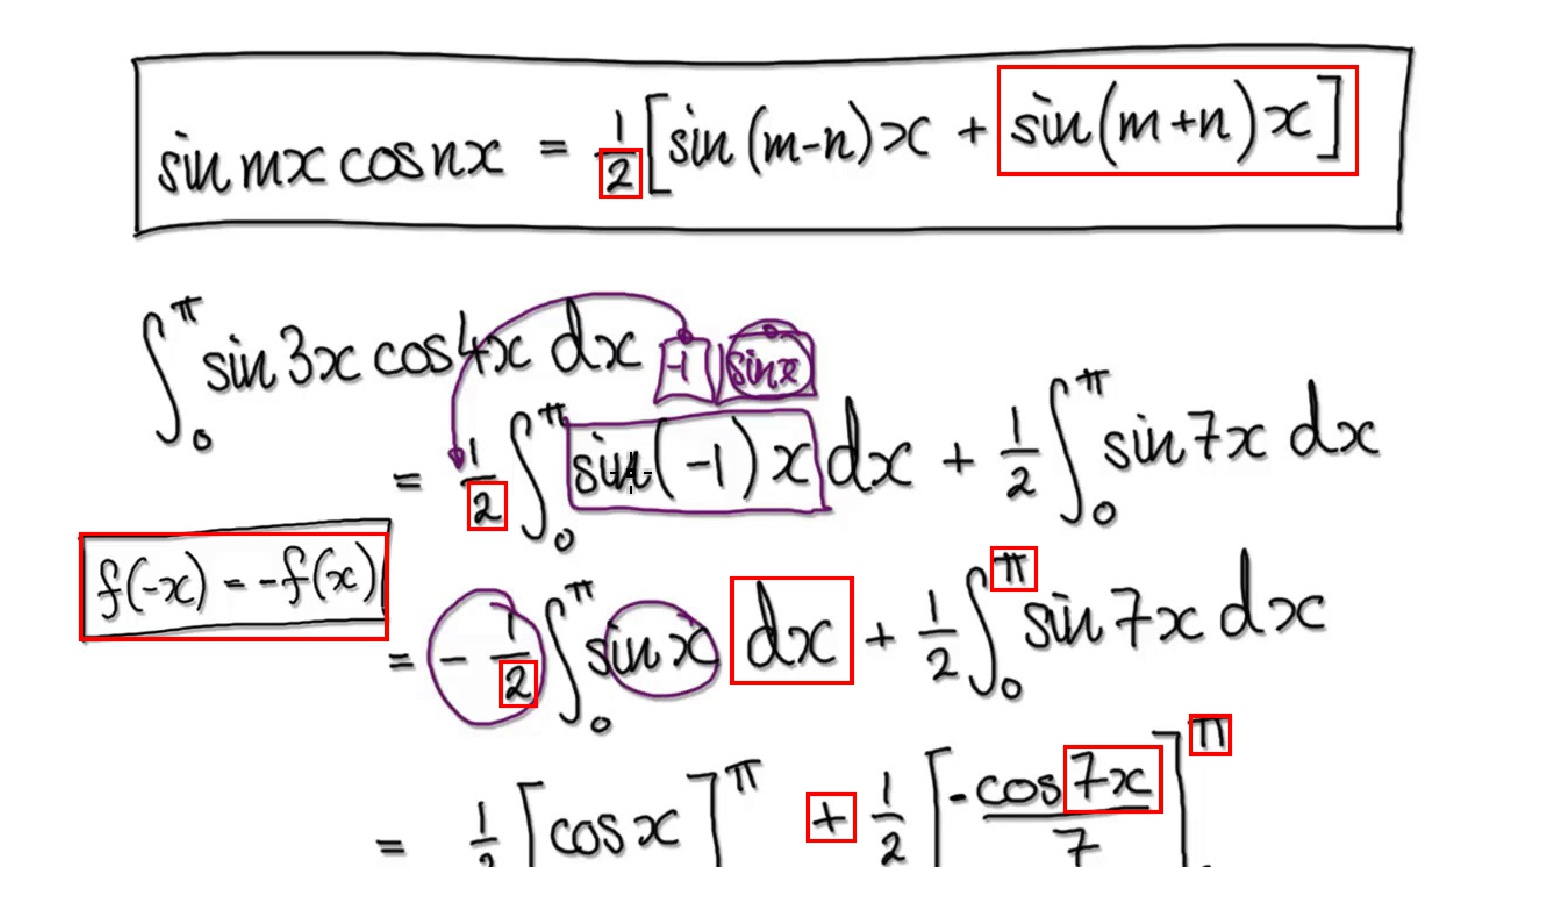 sin mx cos nx = 1/2 [sin (m-n)x + sin(m+n)x]
∫₀^π sin 3x cos 4x dx -1 sin x
= 1/2 ∫₀^π sin(-1)x dx + 1/2 ∫₀^π sin 7x dx
f(-x) = -f(x)
= -1/2 ∫₀^π sin x dx + 1/2 ∫₀^π sin 7x dx
= 1/2 [cos x]^π + 1/2 [-cos 7x / 7]^π